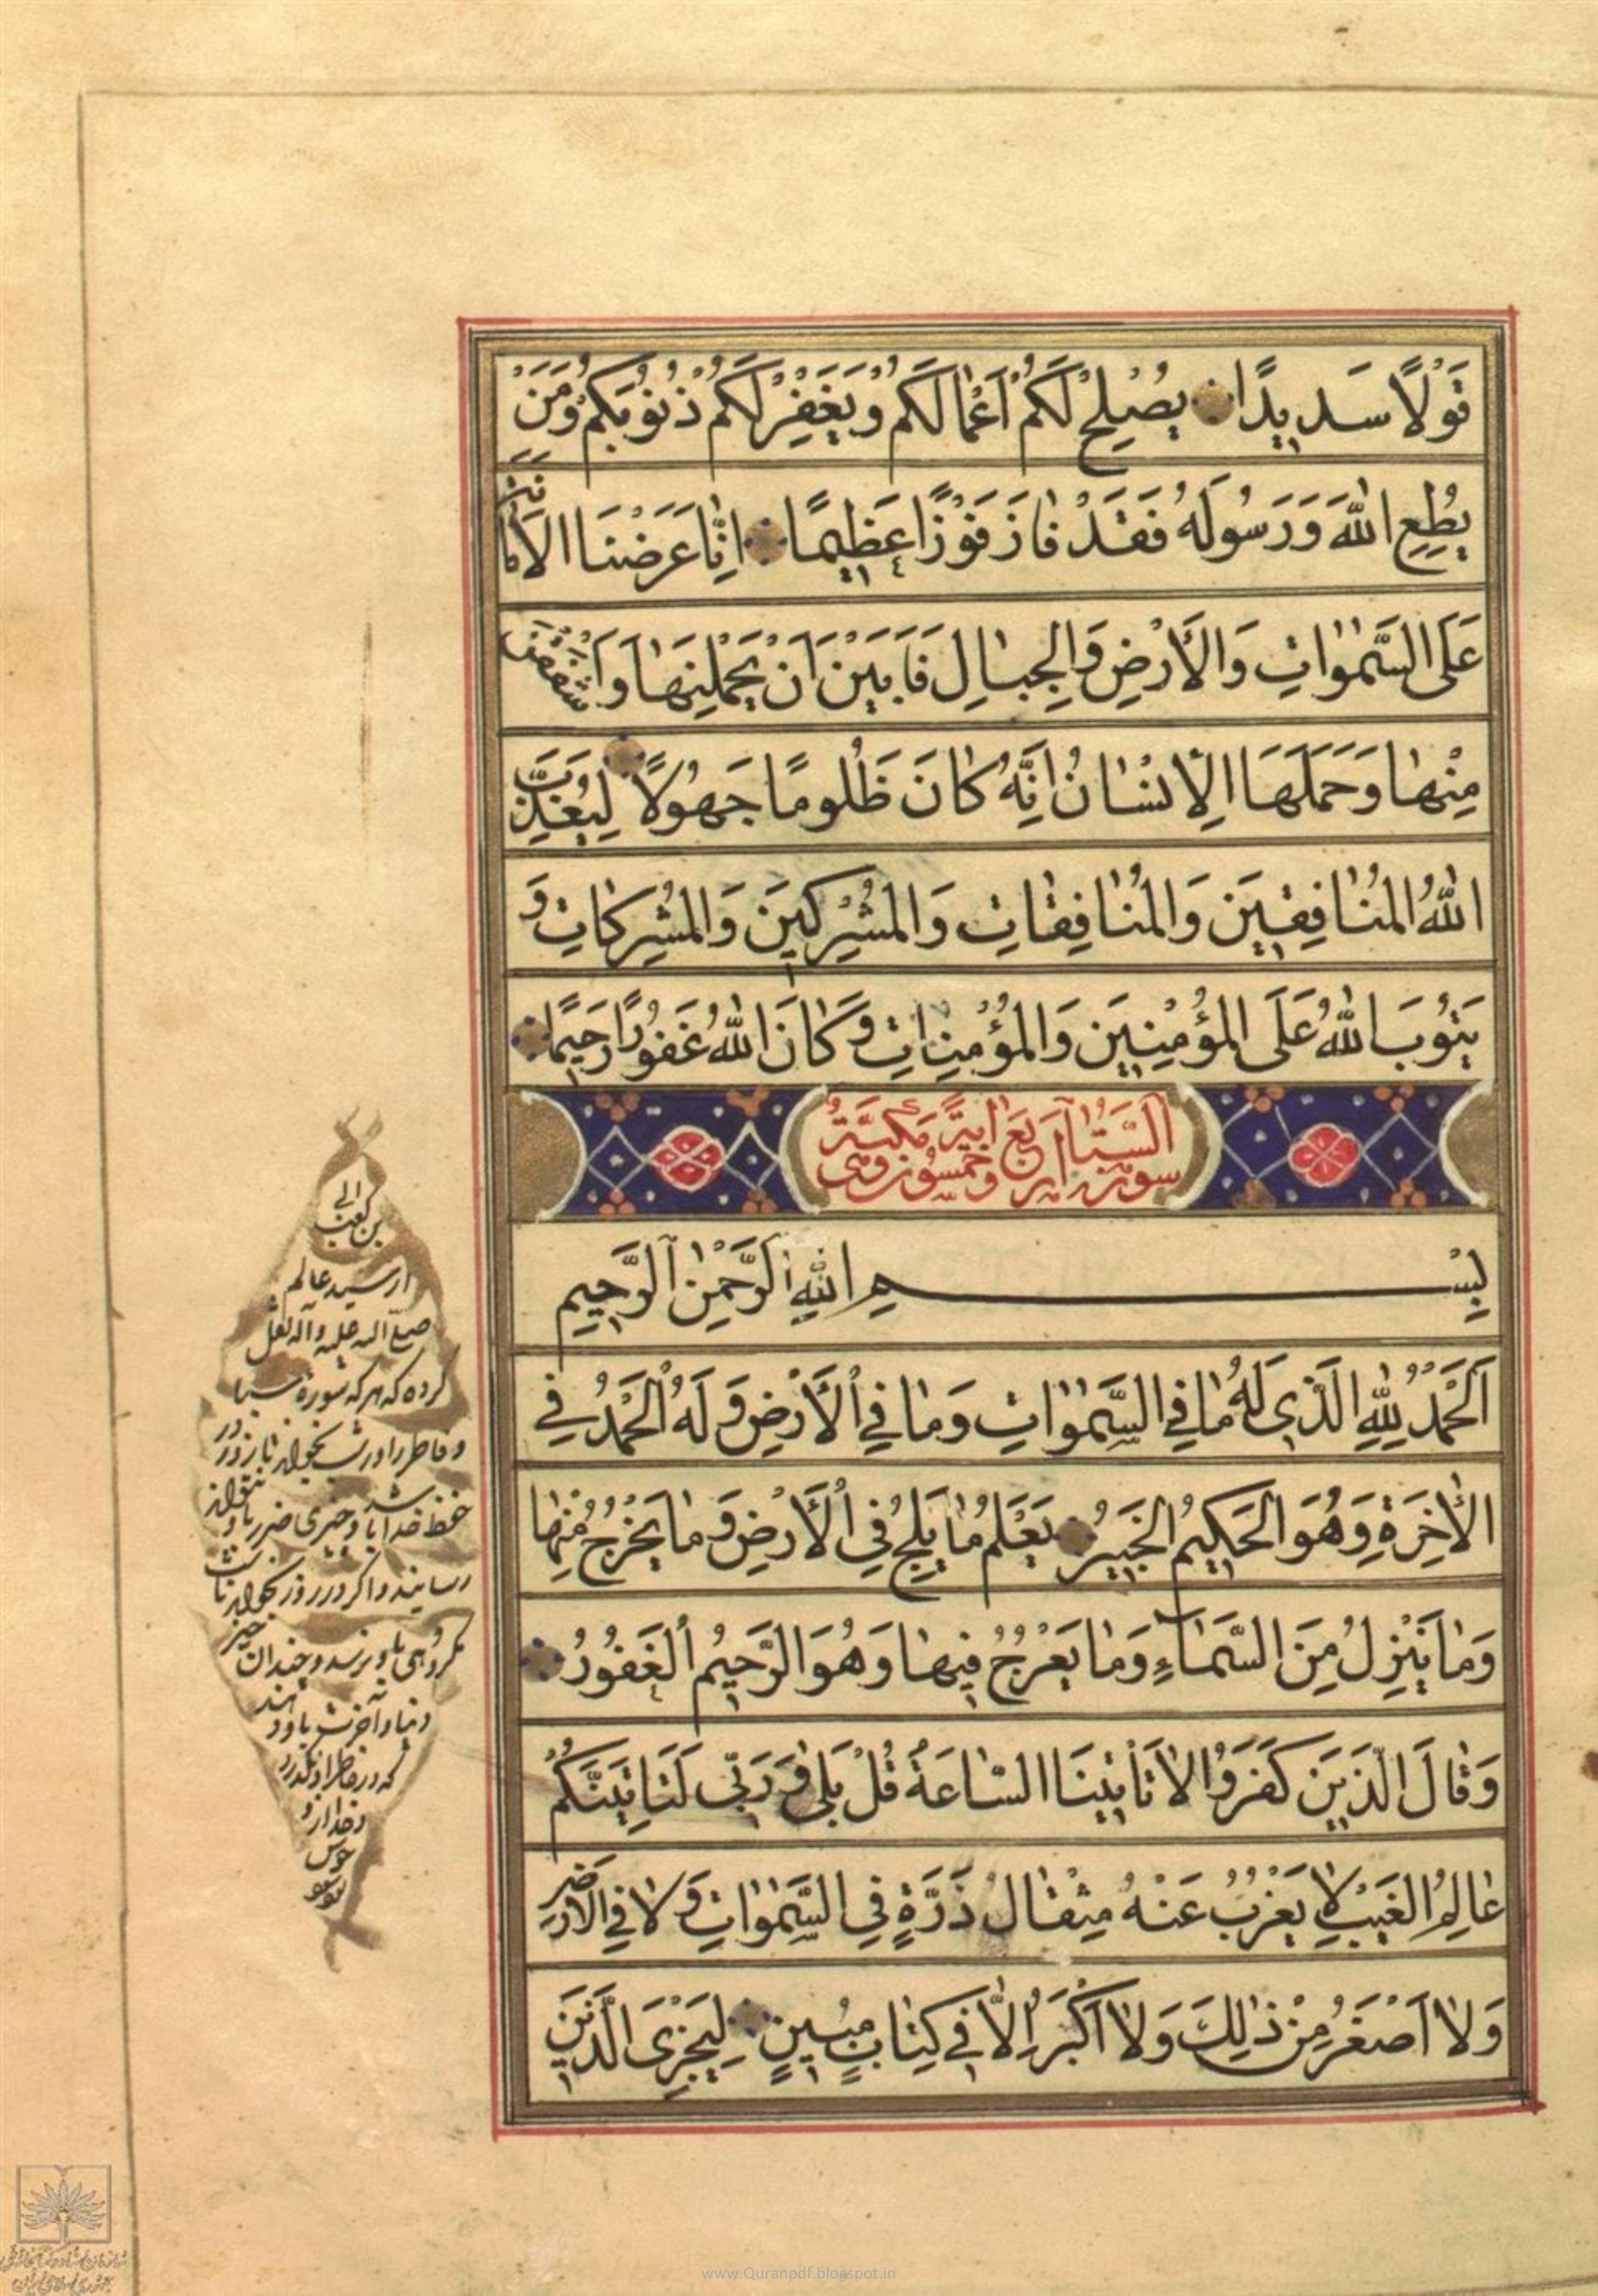 قَوْلًا سَدِيدًا يُصْلِحْ لَكُمْ اَعْمٰالَكُمْ وَيَغْفِرْ لَكُمْ ذُنُوبَكُمْ وَمَنْ
يُطِعِ اللّٰهَ وَرَسُولَهُ فَقَدْ فٰازَ فَوْزًا عَظِيمًا اِنّٰا عَرَضْنَا الْاَمٰانَةَ
عَلَى السَّمٰوٰاتِ وَالْاَرْضِ وَالْجِبٰالِ فَاَبَيْنَ اَنْ يَحْمِلْنَهٰا وَاَشْفَقْنَ
مِنْهٰا وَحَمَلَهَا الْاِنْسٰانُ اِنَّهُ كٰانَ ظَلُومًا جَهُولًا لِيُعَذِّبَ
اللّٰهُ الْمُنٰافِقِينَ وَالْمُنٰافِقٰاتِ وَالْمُشْرِكِينَ وَالْمُشْرِكٰاتِ وَ
يَتُوبَ اللّٰهُ عَلَى الْمُؤْمِنِينَ وَالْمُؤْمِنٰاتِ وَكٰانَ اللّٰهُ غَفُورًا رَحِيمًا
سورة السبا اربع وخمسون اية وهى مكية
بِسْمِ اللّٰهِ الرَّحْمٰنِ الرَّحِيمِ
اَلْحَمْدُ لِلّٰهِ الَّذِي لَهُ مٰا فِي السَّمٰوٰاتِ وَمٰا فِي الْاَرْضِ وَلَهُ الْحَمْدُ فِي
الْاٰخِرَةِ وَهُوَ الْحَكِيمُ الْخَبِيرُ يَعْلَمُ مٰا يَلِجُ فِي الْاَرْضِ وَمٰا يَخْرُجُ مِنْهٰا
وَمٰا يَنْزِلُ مِنَ السَّمٰاءِ وَمٰا يَعْرُجُ فِيهٰا وَهُوَ الرَّحِيمُ الْغَفُورُ
وَقٰالَ الَّذِينَ كَفَرُوا لٰا تَأْتِينَا السّٰاعَةُ قُلْ بَلىٰ وَرَبِّي لَتَأْتِيَنَّكُمْ
عٰالِمِ الْغَيْبِ لٰا يَعْزُبُ عَنْهُ مِثْقٰالُ ذَرَّةٍ فِي السَّمٰوٰاتِ وَلٰا فِي الْاَرْضِ
وَلٰا اَصْغَرُ مِنْ ذٰلِكَ وَلٰا اَكْبَرُ اِلّٰا فِي كِتٰابٍ مُبِينٍ لِيَجْزِيَ الَّذِينَ
ابی
بن کعب
از سید عالم
صلی الله علیه و آله نقل
کرده که هر که سورۀ سبا
و فاطر را در شب بخواند تا روز در
حفظ خدا باشد و چیزی ضرر باو نتواند
رسانید و اگر در روز بخواند تا شب
مکروهی باو نرسد و چندان خیر
دنیا و آخرت باو دهند
که در خاطر او نگذرد
www.Quranpdf.blogspot.in